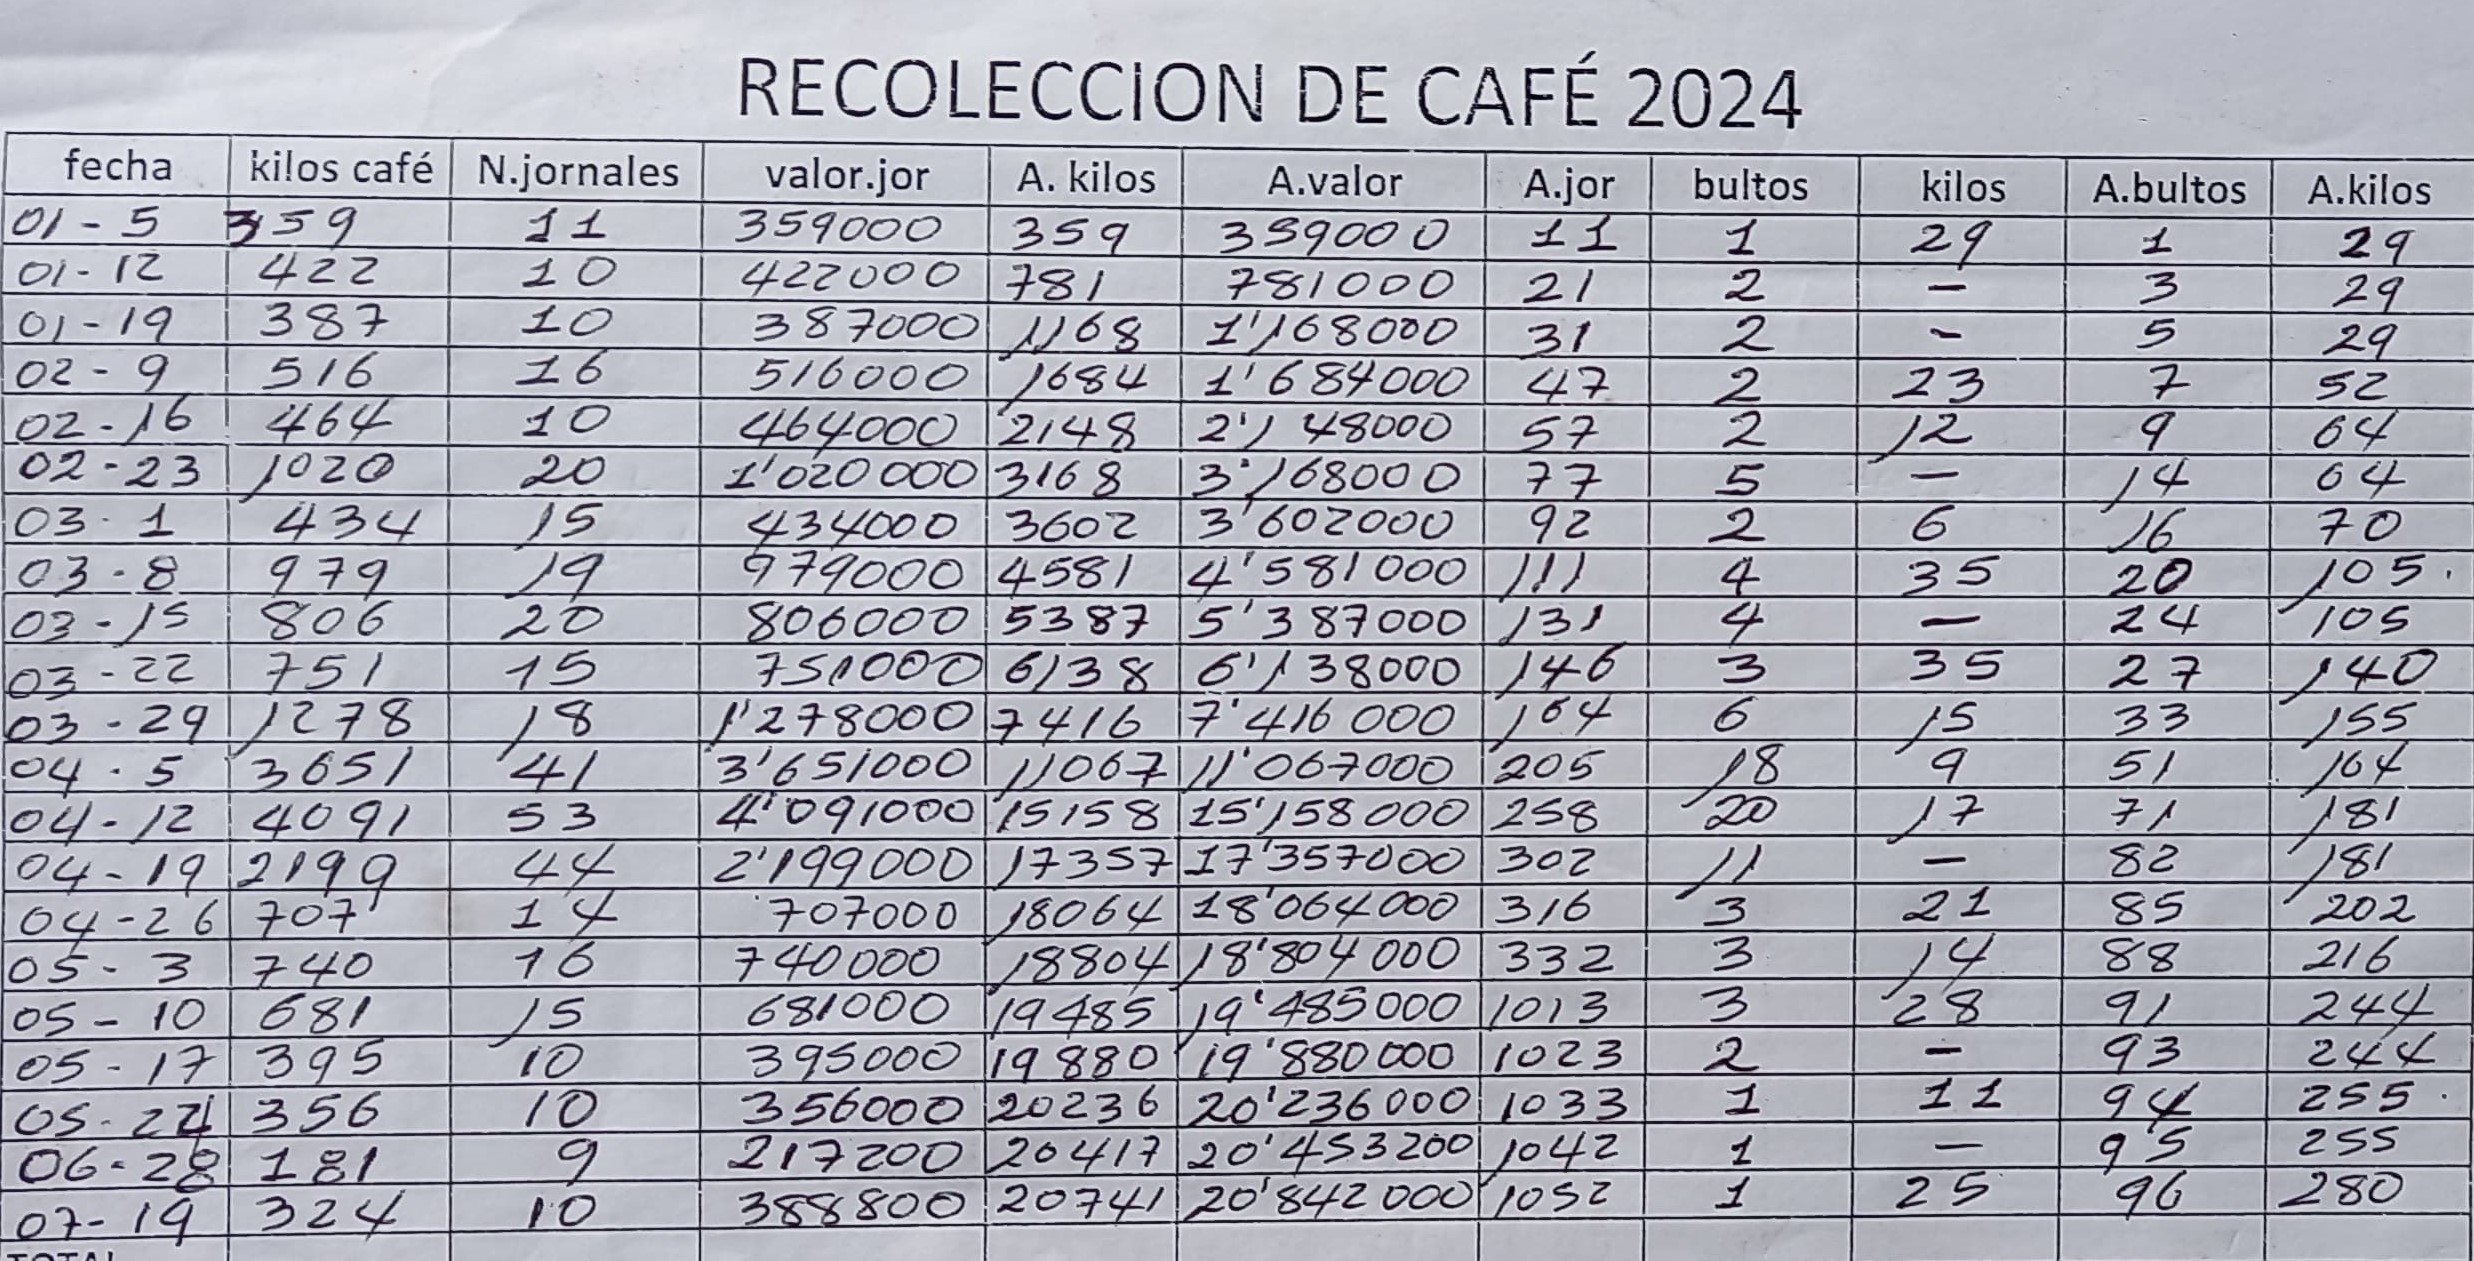 RECOLECCION DE CAFÉ 2024
fecha kilos café N.jornales valor.jor A. kilos A.valor A.jor bultos kilos A.bultos A.kilos
01-5 359 11 359000 359 359000 11 1 29 1 29
01-12 422 10 422000 781 781000 21 2 - 3 29
01-19 387 10 387000 1168 1'168000 31 2 - 5 29
02-9 516 16 516000 1684 1'684000 47 2 23 7 52
02-16 464 10 464000 2148 2'148000 57 2 12 9 64
02-23 1020 20 1'020000 3168 3'168000 77 5 - 14 64
03-1 434 15 434000 3602 3'602000 92 2 6 16 70
03-8 979 19 979000 4581 4'581000 111 4 35 20 105.
03-15 806 20 806000 5387 5'387000 131 4 - 24 105
03-22 751 15 751000 6138 6'138000 146 3 35 27 140
03-29 1278 18 1'278000 7416 7'416000 164 6 15 33 155
04-5 3651 41 3'651000 11067 11'067000 205 18 9 51 164
04-12 4091 53 4'091000 15158 15'158000 258 20 17 71 181
04-19 2199 44 2'199000 17357 17'357000 302 11 - 82 181
04-26 707 14 707000 18064 18'064000 316 3 21 85 202
05-3 740 16 740000 18804 18'804000 332 3 14 88 216
05-10 681 15 681000 19485 19'485000 1013 3 28 91 244
05-17 395 10 395000 19880 19'880000 1023 2 - 93 244
05-24 356 10 356000 20236 20'236000 1033 1 11 94 255.
06-28 181 9 217200 20417 20'453200 1042 1 - 95 255
07-19 324 10 388800 20741 20'842000 1052 1 25 96 280
TOTAL